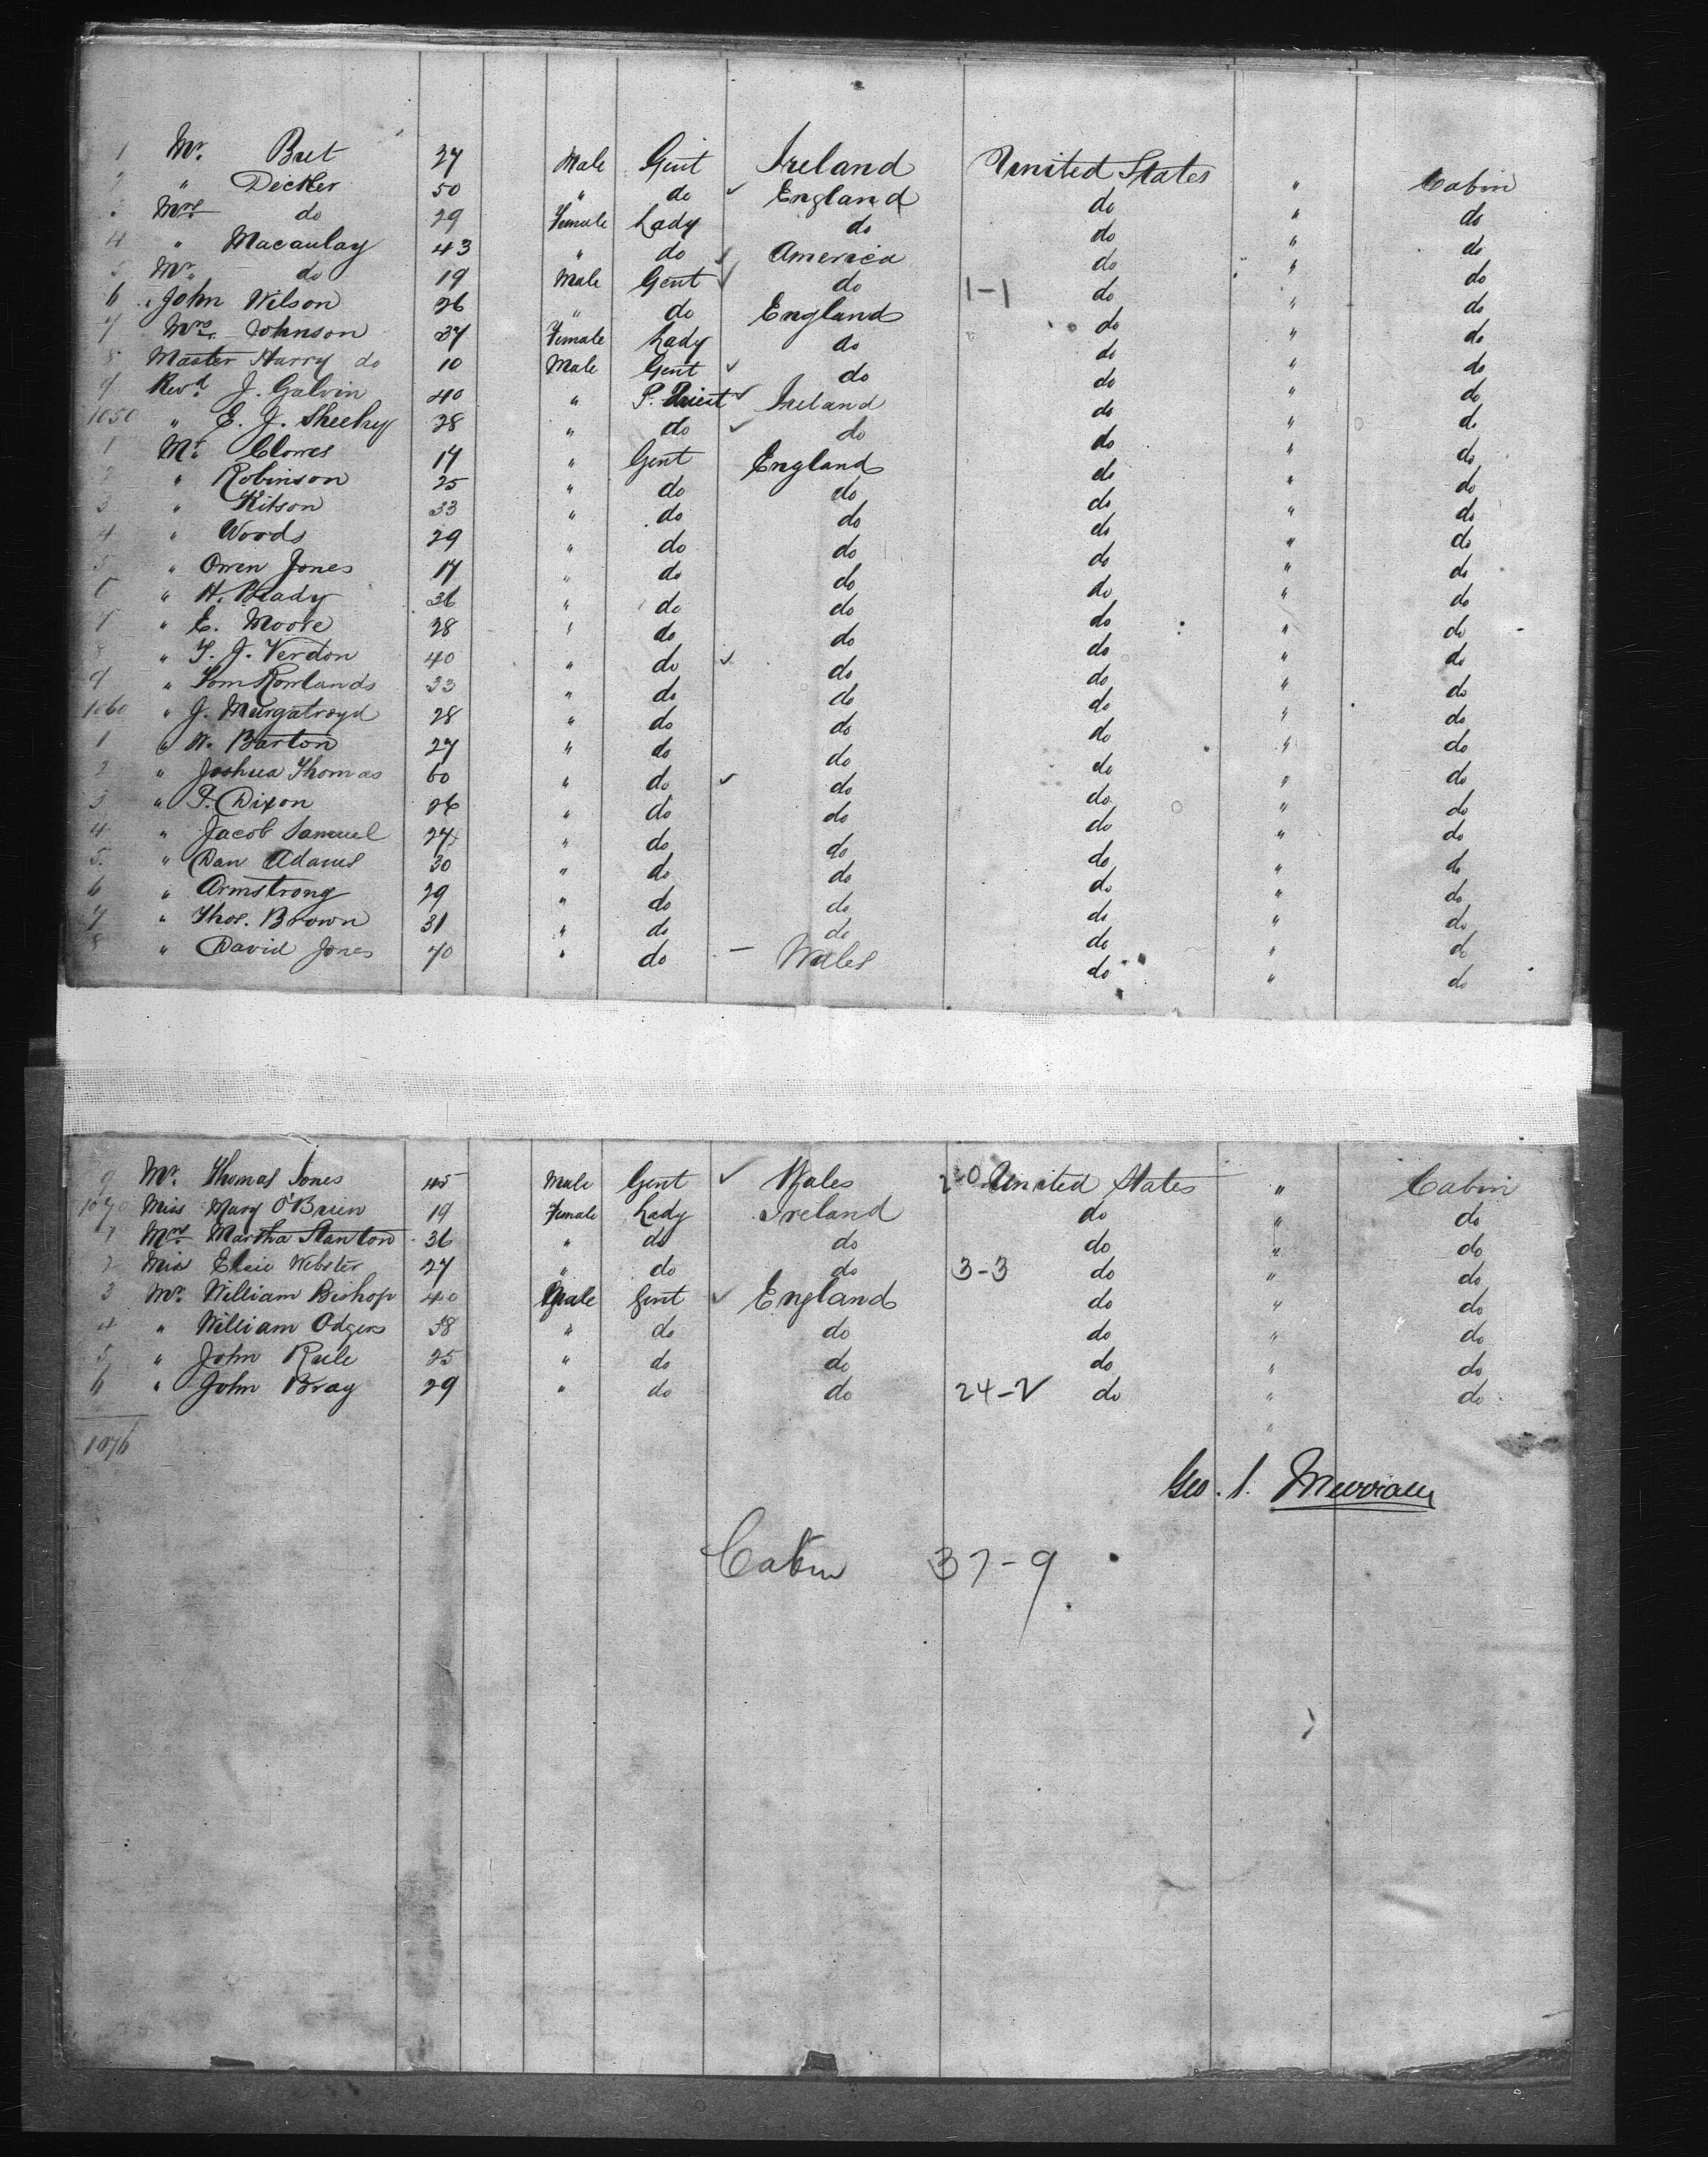 1 Mr. Bret 27 Male Gent Ireland United States " Cabin
2 " Decker 50 " do England do " do
3 Mrs do 29 Female Lady do do " do
4 " Macaulay 43 " do America do " do
5 Mr. do 19 Male Gent do 1-1 do " do
6 " John Wilson 26 " do England do " do
7 Mrs. Johnson 37 Female Lady do do " do
8 Master Harry do 10 Male Gent do do " do
9 Revd. J. Galvin 40 " P. Priest Ireland do " do
1050 " E. J. Sheehy 28 " do do do " do
1 Mr. Clowes 17 " Gent England do " do
2 " Robinson 25 " do do do " do
3 " Kitson 33 " do do do " do
4 " Woods 29 " do do do " do
5 " Owen Jones 17 " do do do " do
6 " H. Brady 36 " do do do " do
7 " E. Moore 28 " do do do " do
8 " T. J. Verdon 40 " do do do " do
9 " Tom Rowlands 33 " do do do " do
1060 " J. Murgatroyd 28 " do do do " do
1 " W. Barton 27 " do do do " do
2 " Joshua Thomas 60 " do do do " do
3 " T. Dixon 26 " do do do " do
4 " Jacob Samuel 27 " do do do " do
5 " Dan Adams 30 " do do do " do
6 " Armstrong 29 " do do do " do
7 " Thos. Brown 31 " do do do " do
8 " David Jones 40 " do - Wales do " do
9 Mr. Thomas Jones 45 Male Gent Wales United States " Cabin
1070 Miss Mary O'Brien 19 Female Lady Ireland do " do
1 Mrs Martha Stanton 36 " do do do " do
2 Miss Elsie Webster 27 " do do 3-3 do " do
3 Mr. William Bishop 40 Male Gent England do " do
4 " William Odgers 38 " do do do " do
5 " John Rule 25 " do do do " do
6 " John Bray 29 " do do 24-2 do " do
1076 "
Geo. S. Merriam
Cabin 37-9